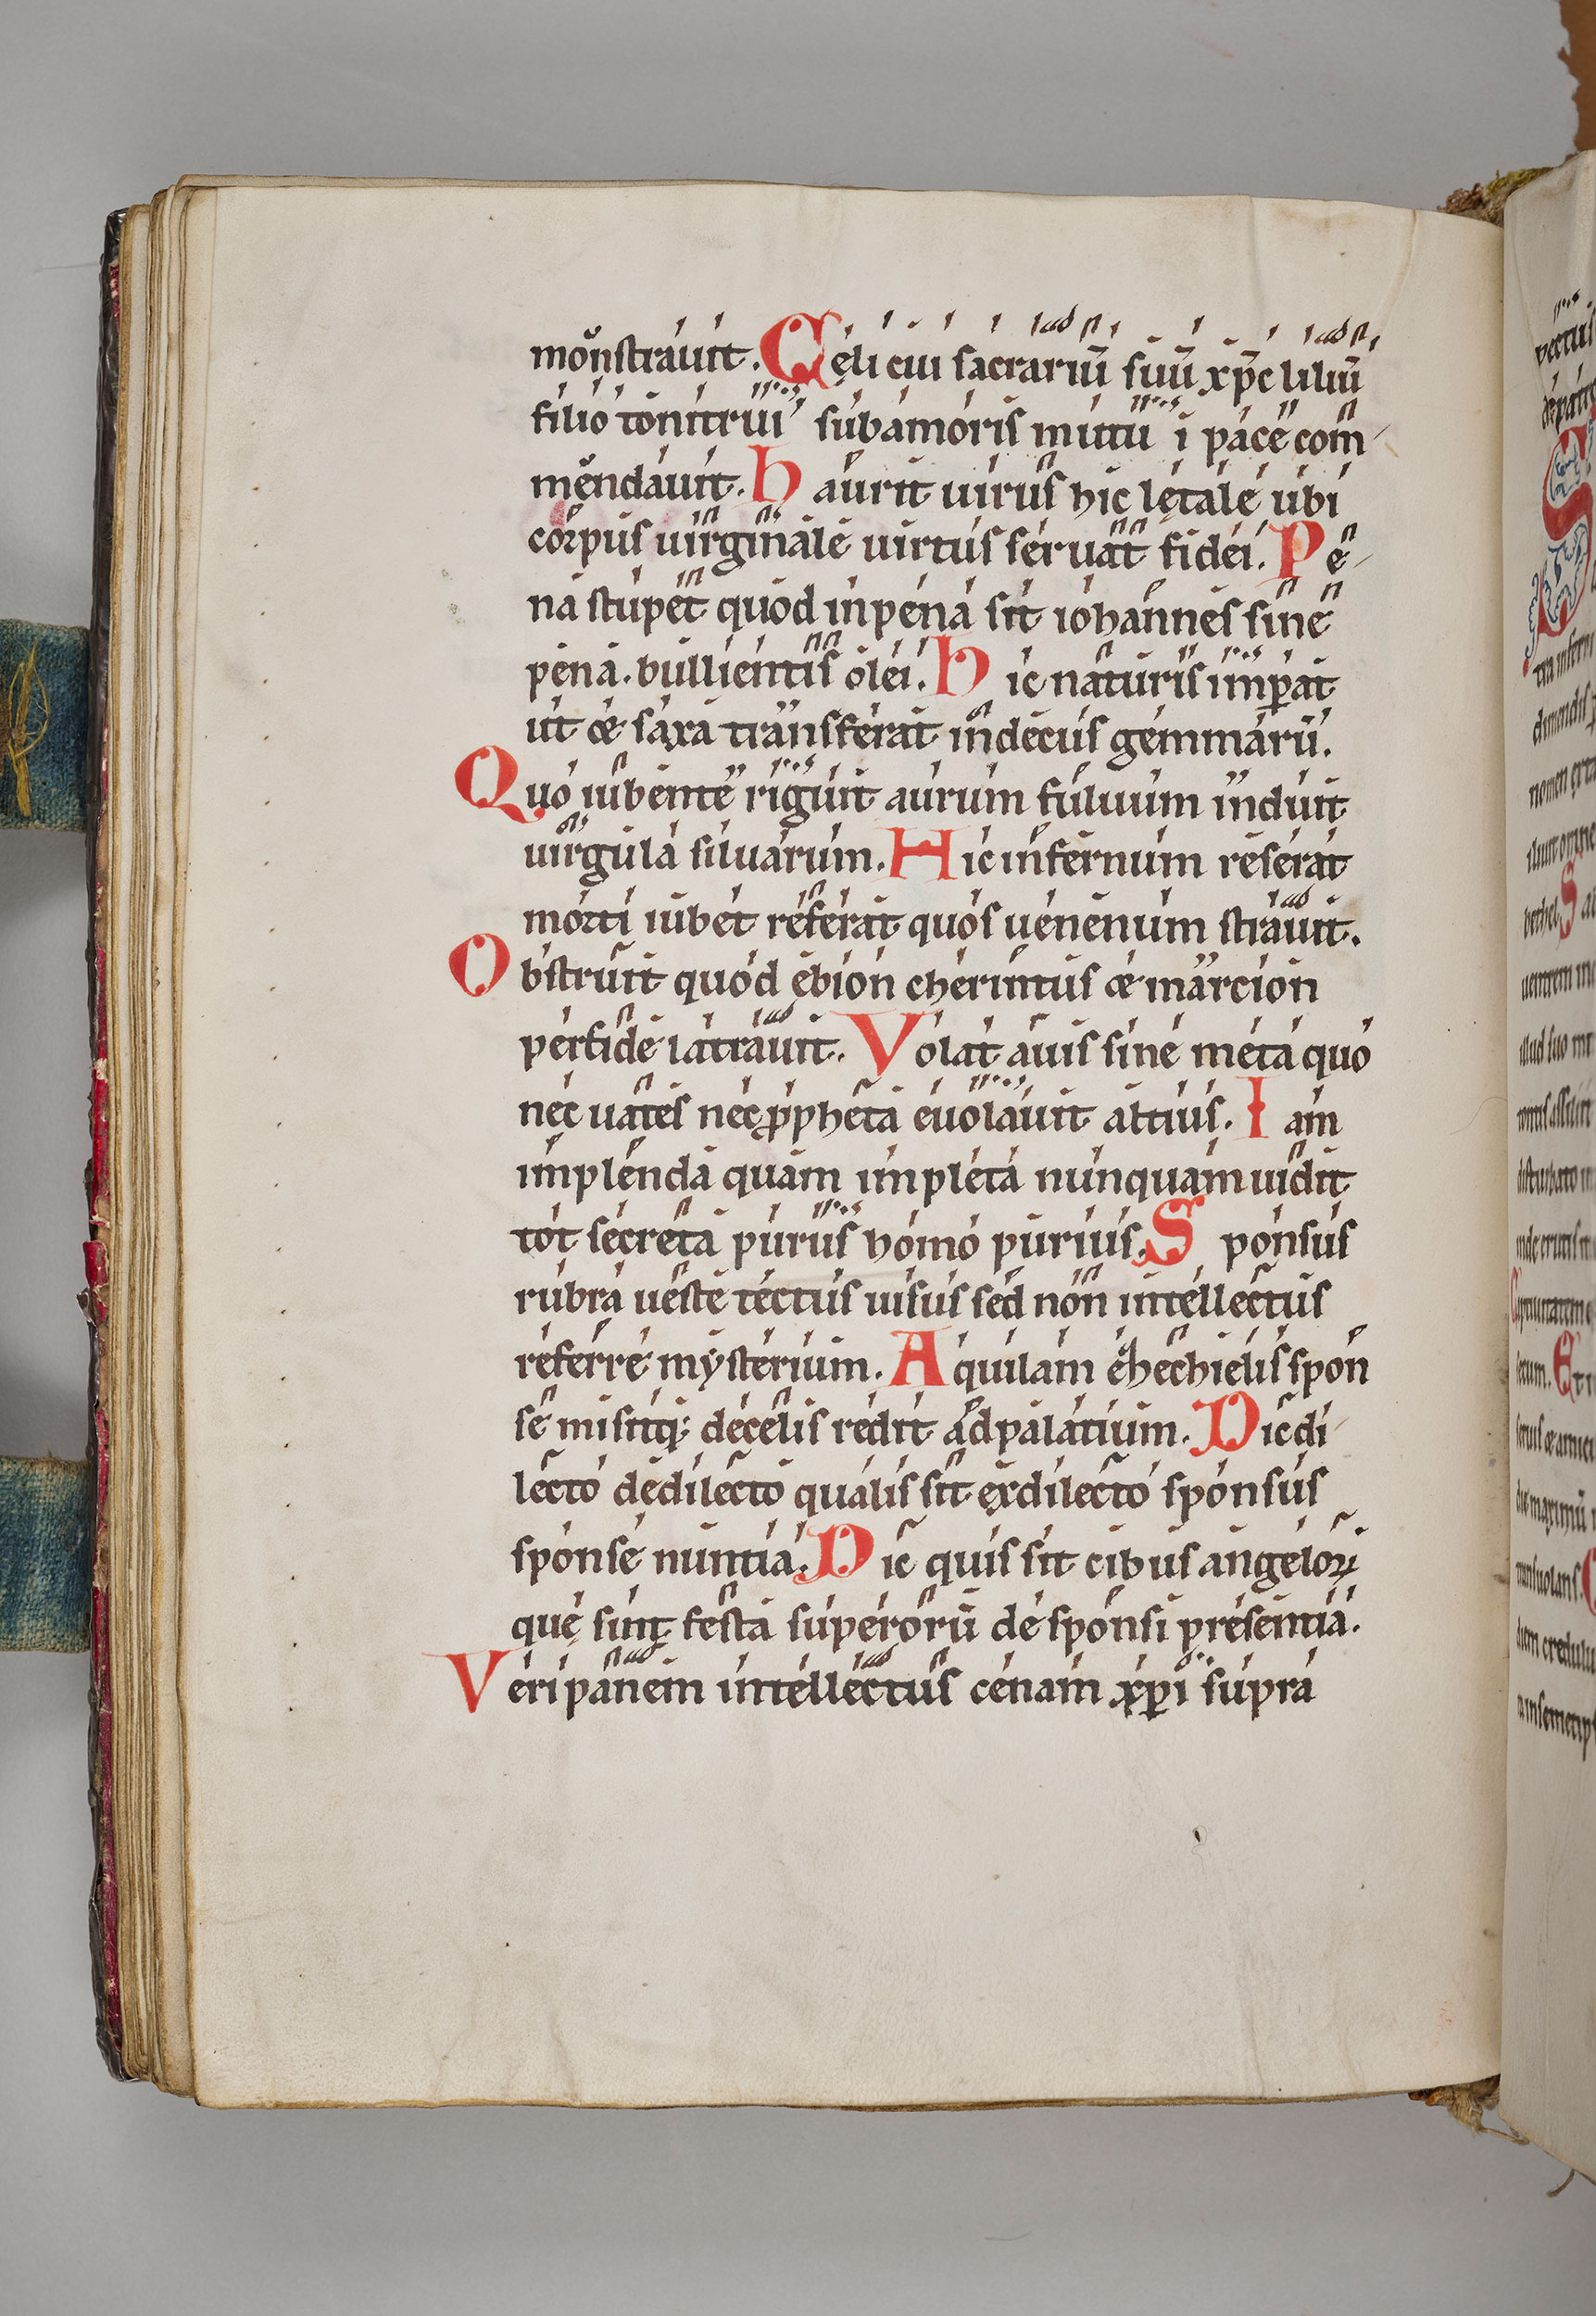 monstrauit. Cęli cui sacrariū suū xp̄c liliū
filio tonitrui sub amoris mutui ī pace com
mendauit. Haurit uirus hic lętale ubi
corpus uirginale uirtus seruat fidei. Pe
na stupet quod in pena sit iohannes sine
pena. bullientis olei. Hic naturis imꝑat
ut & saxa transferat in decus gemmarū.
Quo iubente riguit aurum fuluum induit
uirgula siluarum. Hic infernum reserat
morti iubet referat quos uenenum strauit.
Obstruit quod ebion cherintus & marcion
perfide latrauit. Volat auis sine meta quo
nec uates nec ꝓpheta euolauit altius. Iam
implenda quam impleta nunquam uidit
tot secreta purus homo purius. Sponsus
rubra ueste tectus uisus sed non intellectus
referre mysterium. Aquilam ehechielis spon
se misit q; de celis redit ad palatium. Dic di
lecto de dilecto qualis sit ex dilecto sponsus
sponse nuntia. Dic quis sit cibus angeloꝝ
quę sint festa superorū de sponsi presentia.
Veri panem intellectus cenam xp̄i supra